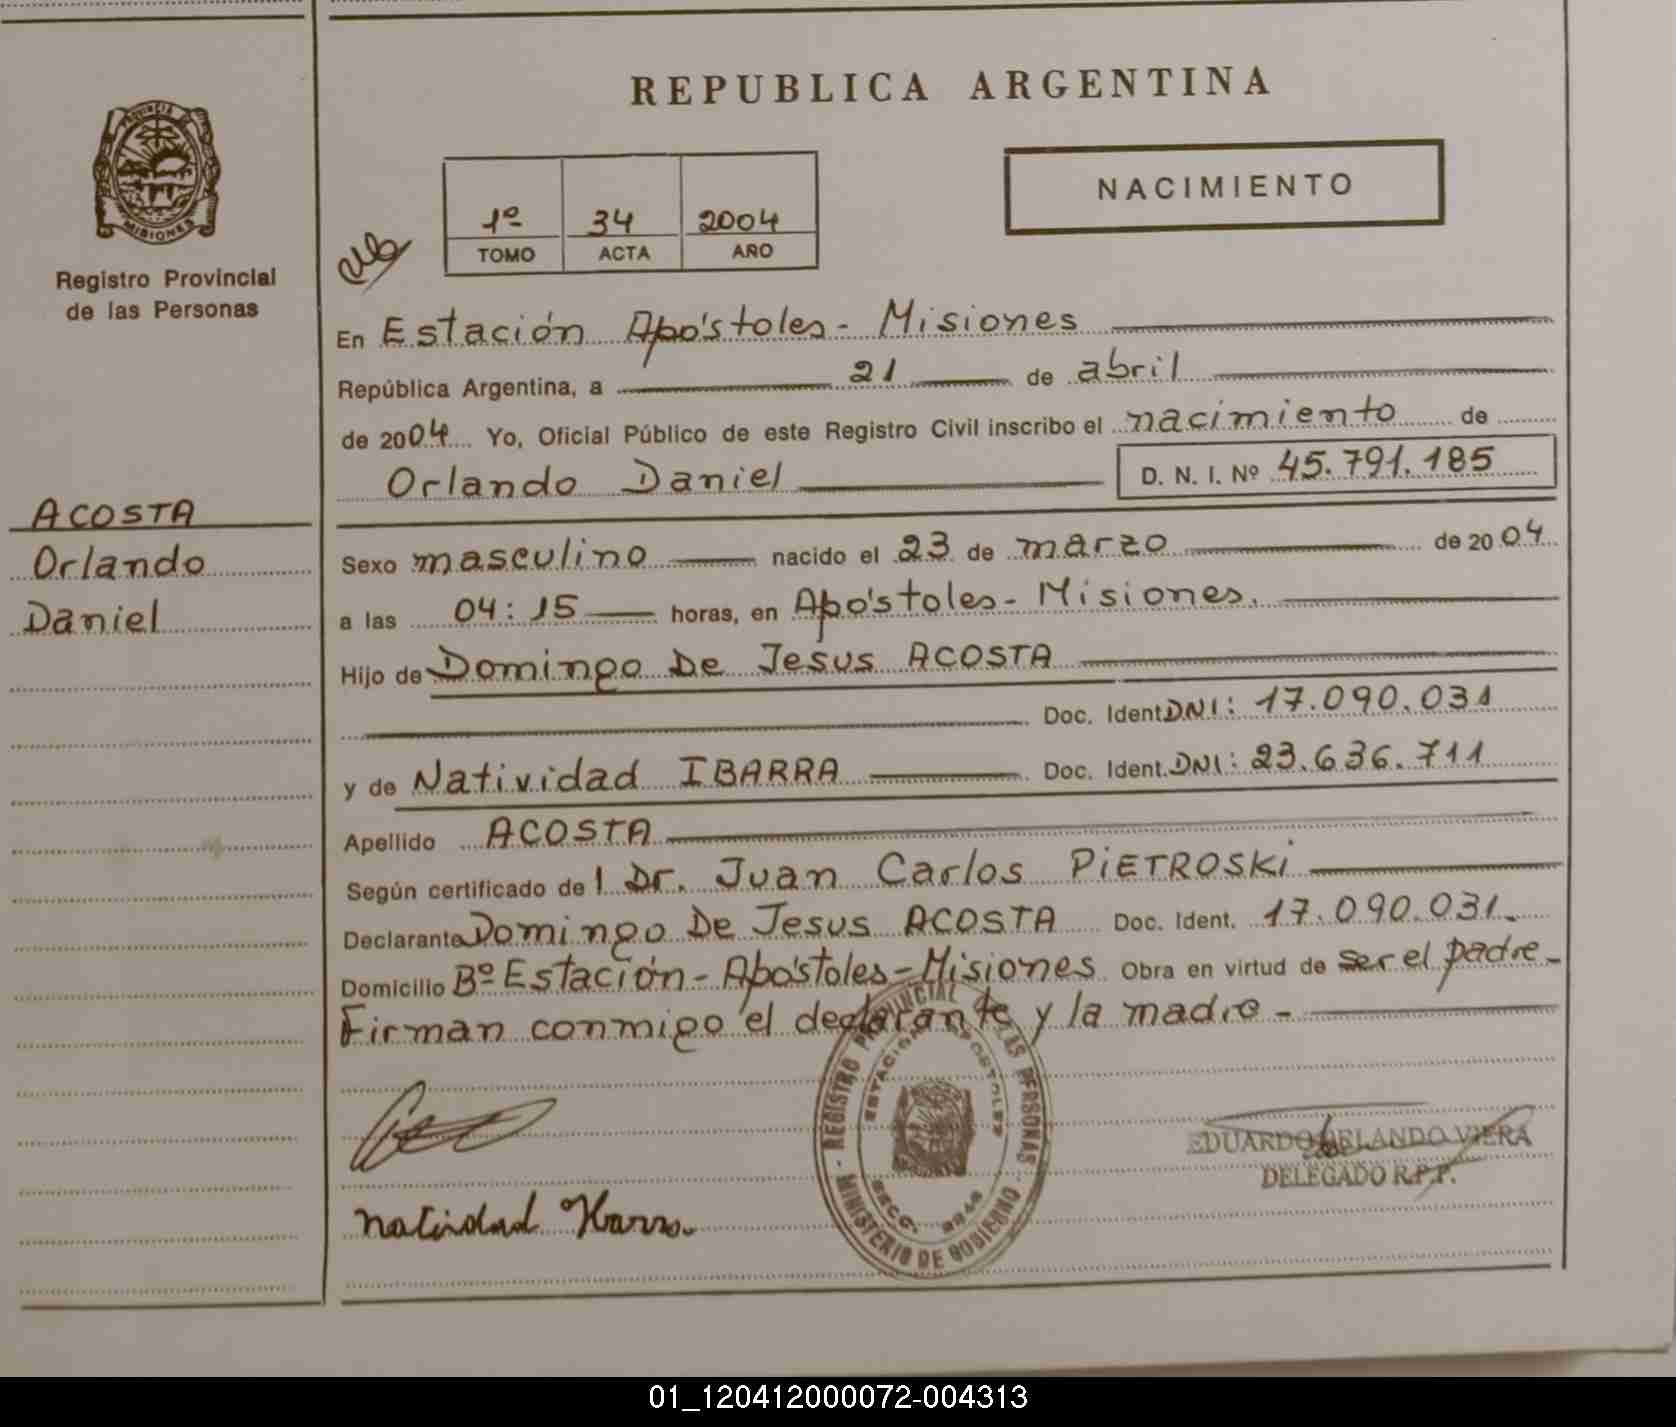 REPUBLICA ARGENTINA
PROVINCIA DE
MISIONES
Registro Provincial
de las Personas
NACIMIENTO
1º 34 2004
TOMO ACTA AÑO
En Estación Apóstoles - Misiones
República Argentina, a 21 de abril
de 2004 Yo, Oficial Público de este Registro Civil inscribo el nacimiento de
Orlando Daniel D. N. I. Nº 45.791.185
ACOSTA
Orlando
Daniel
Sexo masculino nacido el 23 de marzo de 2004
a las 04:15 horas, en Apóstoles - Misiones.
Hijo de Domingo De Jesus ACOSTA
Doc. Ident. DNI: 17.090.031
y de Natividad IBARRA Doc. Ident. DNI: 23.636.711
Apellido ACOSTA
Según certificado de l Dr. Juan Carlos PiETROSKi
Declarante Domingo De Jesus ACOSTA Doc. Ident. 17.090.031.
Domicilio Bº Estación - Apóstoles - Misiones Obra en virtud de ser el padre -
Firman conmigo el declarante y la madre -
REGISTRO PROVINCIAL DE LAS PERSONAS
ESTACION APOSTOLES
MINISTERIO DE GOBIERNO
EDUARDO ORLANDO VIERA
DELEGADO R.P.P.
Natividad Ibarra.
01_120412000072-004313